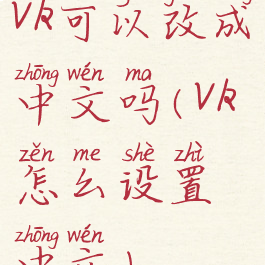 VK可以改成
zhōng wén ma
中文吗(VK
zěn me shè zhì
怎么设置
zhōng wén
中文)